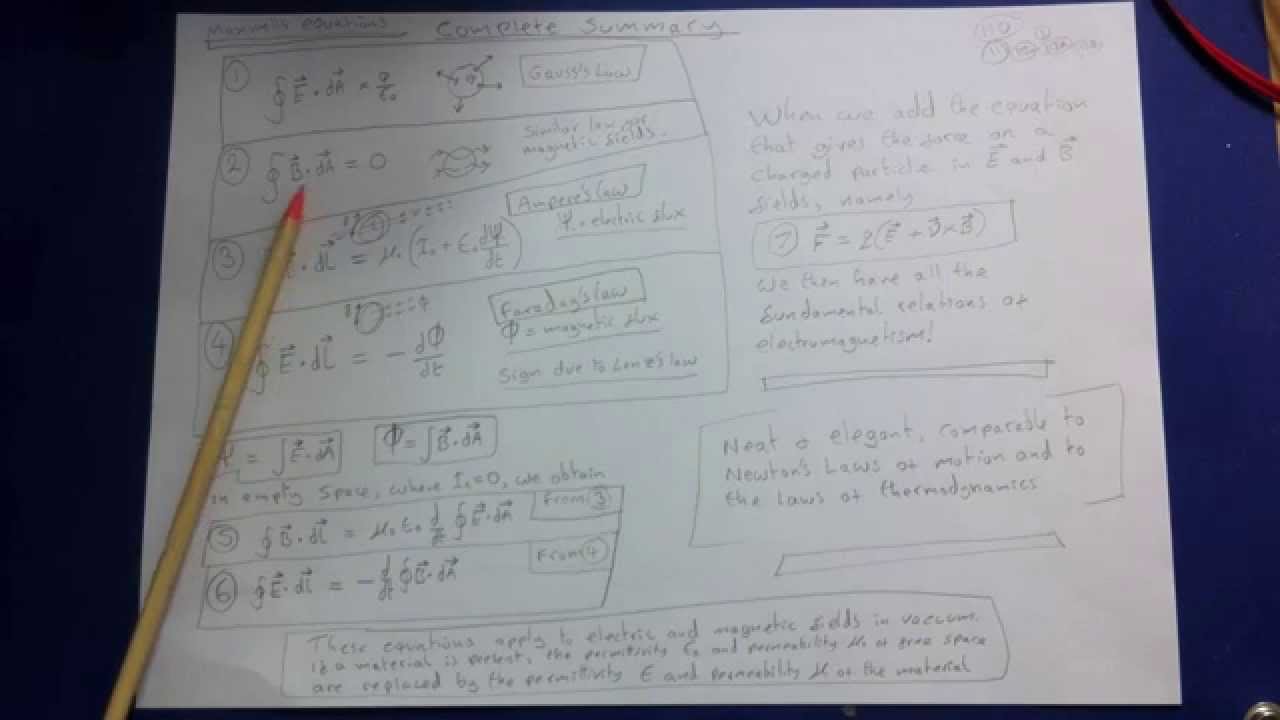 Maxwells equations Complete Summary
① ∮ E⃗ · dA⃗ = q/ε₀
Gauss's Law
② ∮ B⃗ · dA⃗ = 0
Similar law for
magnetic fields.
③ · dl⃗ = μ₀ (I₀ + ε₀ dΨ/dt)
Ampere's law
Ψ = electric flux
④ ∮ E⃗ · dl⃗ = - dΦ/dt
Faraday's law
Φ = magnetic flux
Sign due to Lenz's law
Ψ = ∫ E⃗ · dA⃗
Φ = ∫ B⃗ · dA⃗
In empty space, where I₀ = 0, we obtain
⑤ ∮ B⃗ · dl⃗ = μ₀ ε₀ d/dt ∮ E⃗ · dA⃗
From ③
⑥ ∮ E⃗ · dl⃗ = - d/dt ∮ B⃗ · dA⃗
From ④
When we add the equation
that gives the force on a
charged particle in E⃗ and B⃗
fields, namely
⑦ F⃗ = q(E⃗ + v⃗ × B⃗)
we then have all the
fundamental relations of
electromagnetism!
Neat & elegant, comparable to
Newton's Laws of motion and to
the laws of thermodynamics
These equations apply to electric and magnetic fields in vacuum.
If a material is present, the permitivity ε₀ and permeability μ₀ of free space
are replaced by the permitivity ε and permeability μ of the material